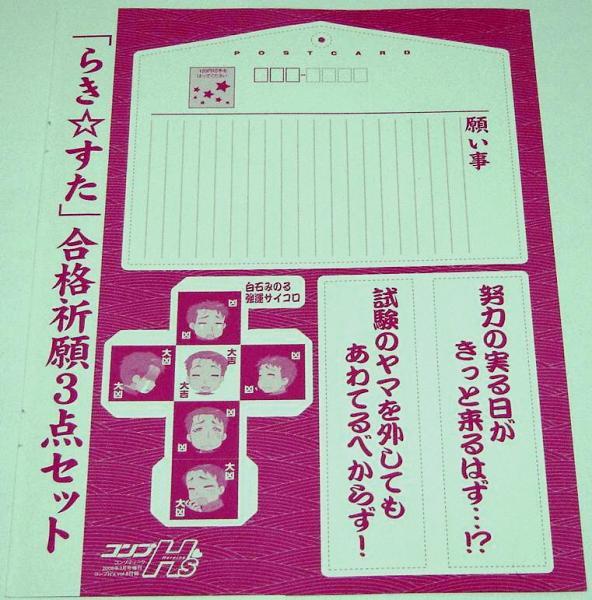 「らき☆すた」合格祈願3点セット
POSTCARD
願い事
白石みのる
強運サイコロ
凶
大凶
大吉
大吉
凶
大凶
凶
凶
大凶
大凶
努力の実る日が
きっと来るはず…!?
試験のヤマを外しても
あわてるべからず!
コンプH's